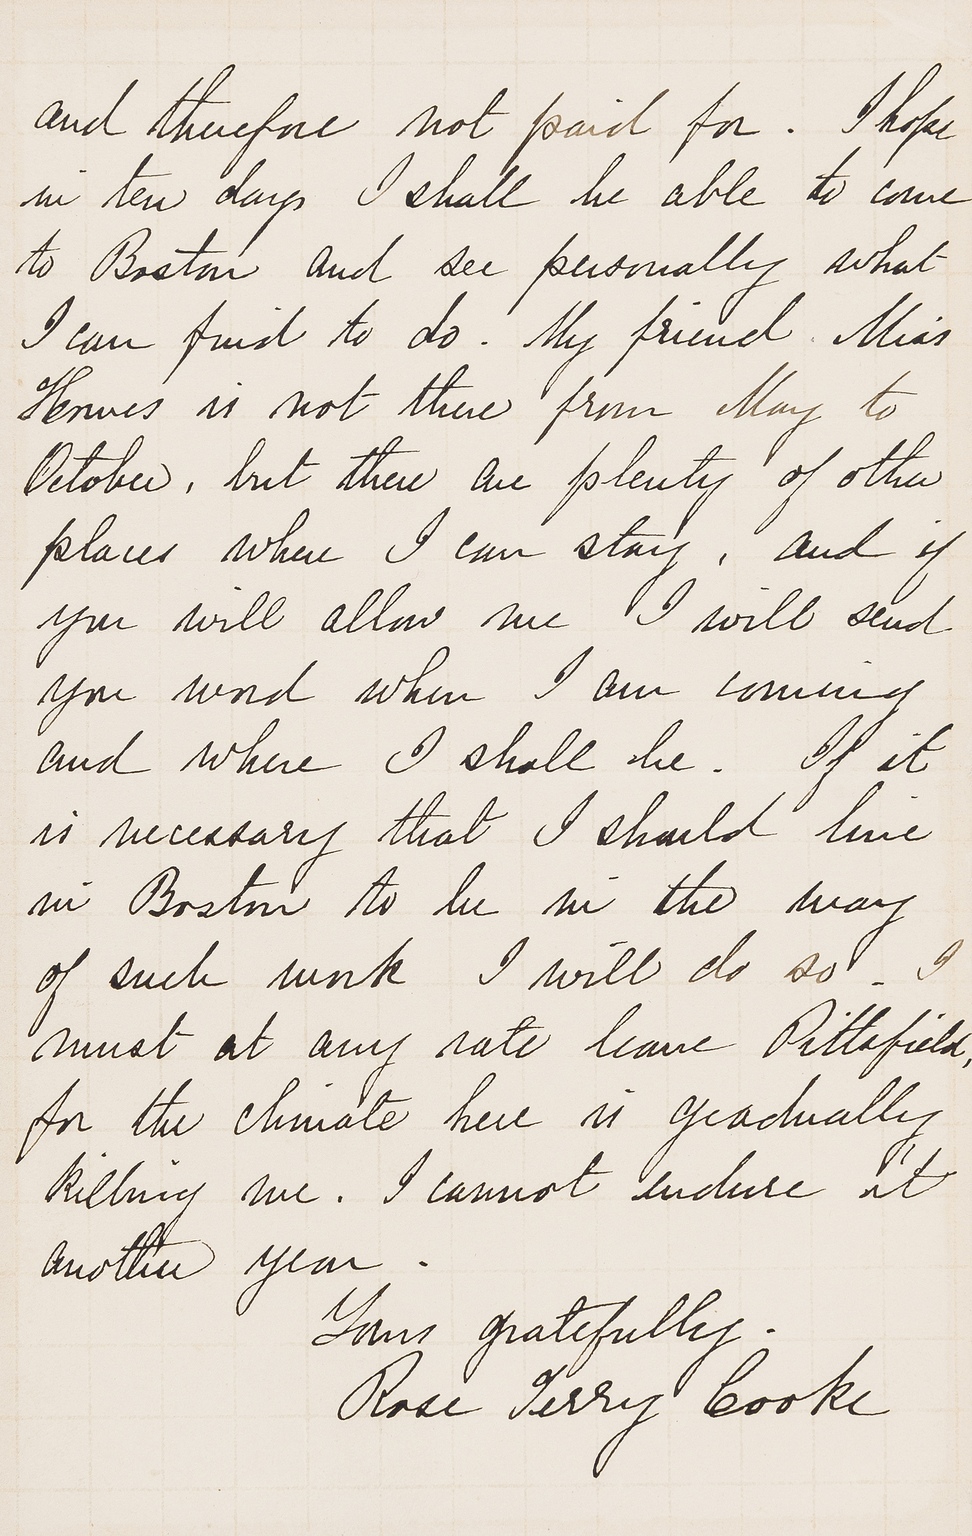 and therefore not paid for. I hope
in ten days I shall be able to come
to Boston and see personally what
I can find to do. My friend Miss
Howes is not there from May to
October, but there are plenty of other
places where I can stay, and if
you will allow me I will send
you word when I am coming
and where I shall be. If it
is necessary that I should live
in Boston to be in the way
of such work I will do so. I
must at any rate leave Pittsfield,
for the climate here is gradually
killing me. I cannot endure it
another year.
Yours gratefully.
Rose Terry Cooke